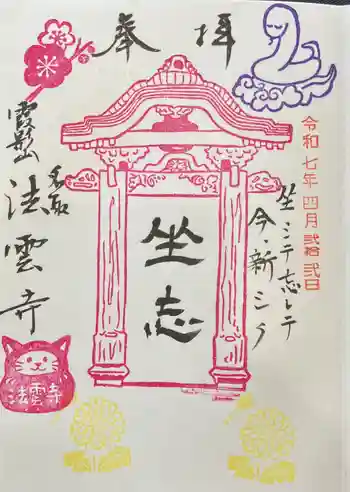 奉拝
令和七年四月弐拾弐日
坐シテ志シテ
今・新シク
坐志
名取
法雲寺
法雲寺